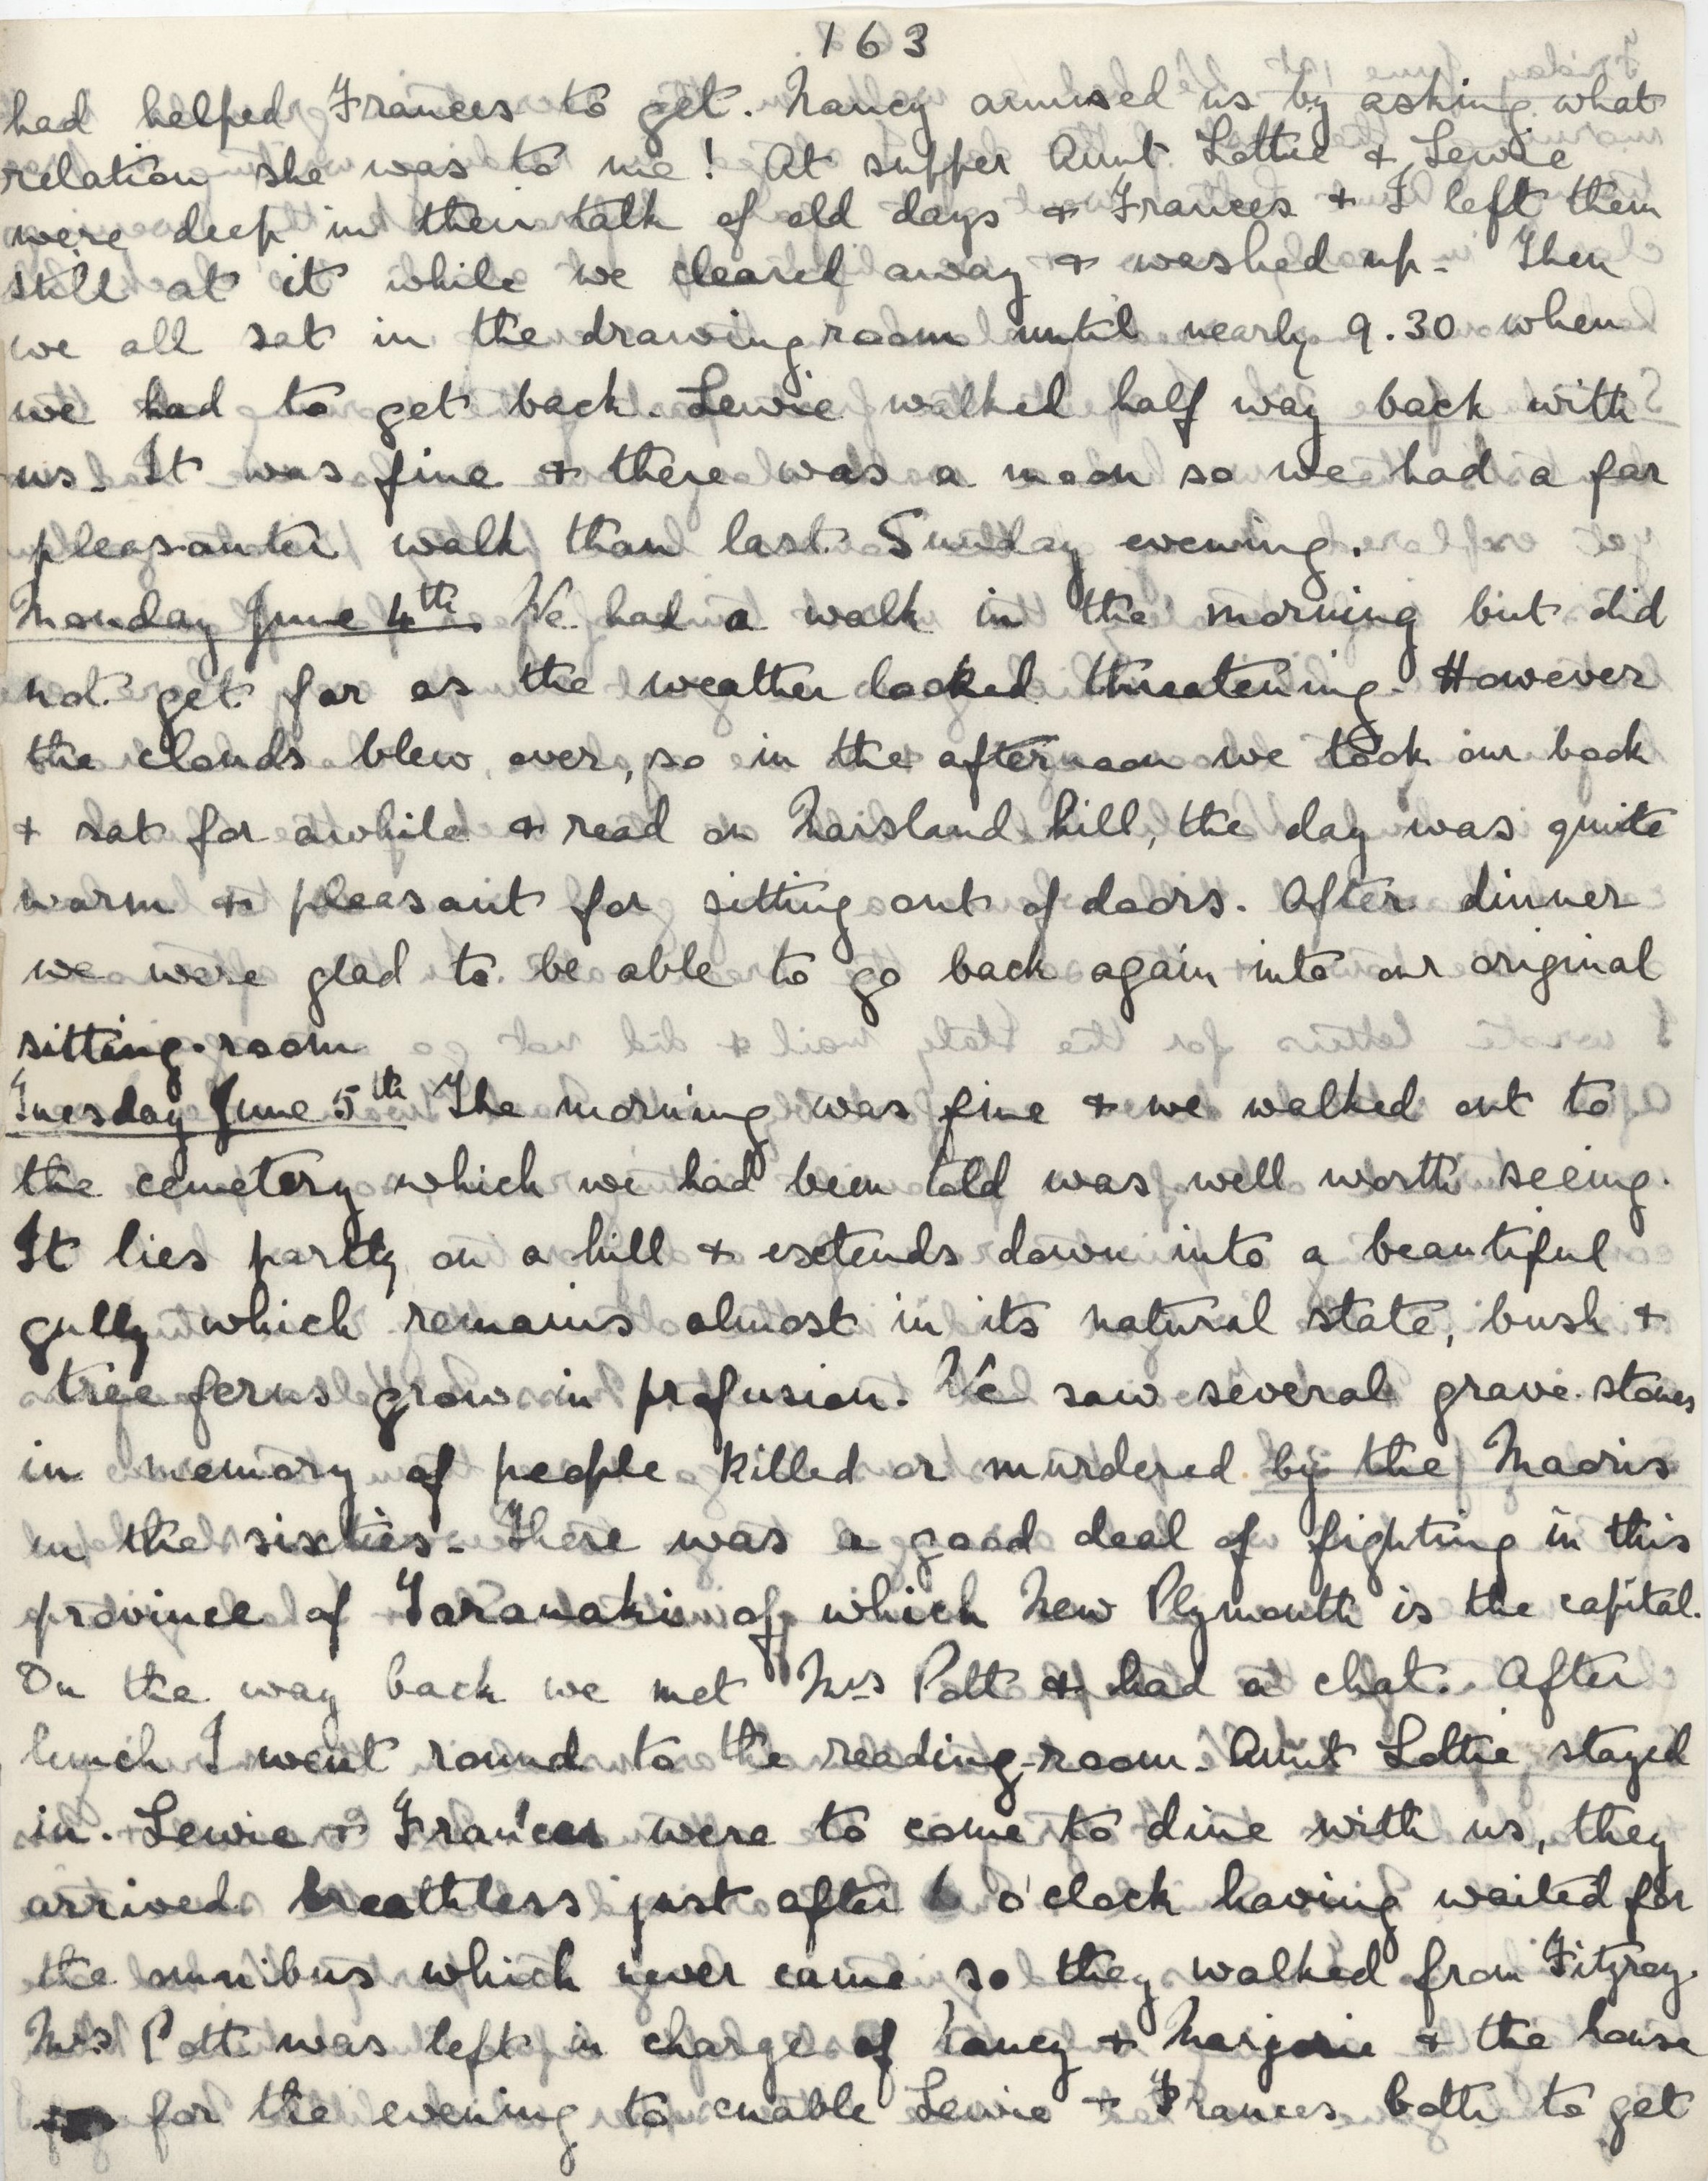 163
had helped Frances to get. Nancy amused us by asking what
relation she was to me! At supper Aunt Lottie & Lewie
were deep in their talk of old days & Frances & I left them
still at it while we cleared away & washed up. Then
we all sat in the drawing room until nearly 9.30 when
we had to get back. Lewie walked half way back with
us. It was fine & there was a moon so we had a far
pleasanter walk than last Sunday evening.
Monday June 4th. We had a walk in the morning but did
not get far as the weather looked threatening. However
the clouds blew over, so in the afternoon we took our book
& sat for awhile & read on Marsland hill, the day was quite
warm & pleasant for sitting out of doors. After dinner
we were glad to be able to go back again into our original
sitting-room
Tuesday June 5th The morning was fine & we walked out to
the cemetery which we had been told was well worth seeing.
It lies partly on a hill & extends down into a beautiful
gully which remains almost in its natural state, bush &
tree ferns grow in profusion. We saw several grave-stones
in memory of people killed or murdered by the Maoris
in the sixties. There was a good deal of fighting in this
province of Taranaki of which New Plymouth is the capital.
On the way back we met Mrs Pott & had a chat. After
lunch I went round to the reading-room. Aunt Lottie stayed
in. Lewie & Frances were to come to dine with us, they
arrived breathless just after 6 o'clock having waited for
the omnibus which never came so they walked from Fitzroy.
Mrs Pott was left in charge of Nancy & Marjorie & the house
for the evening to enable Lewie & Frances both to get